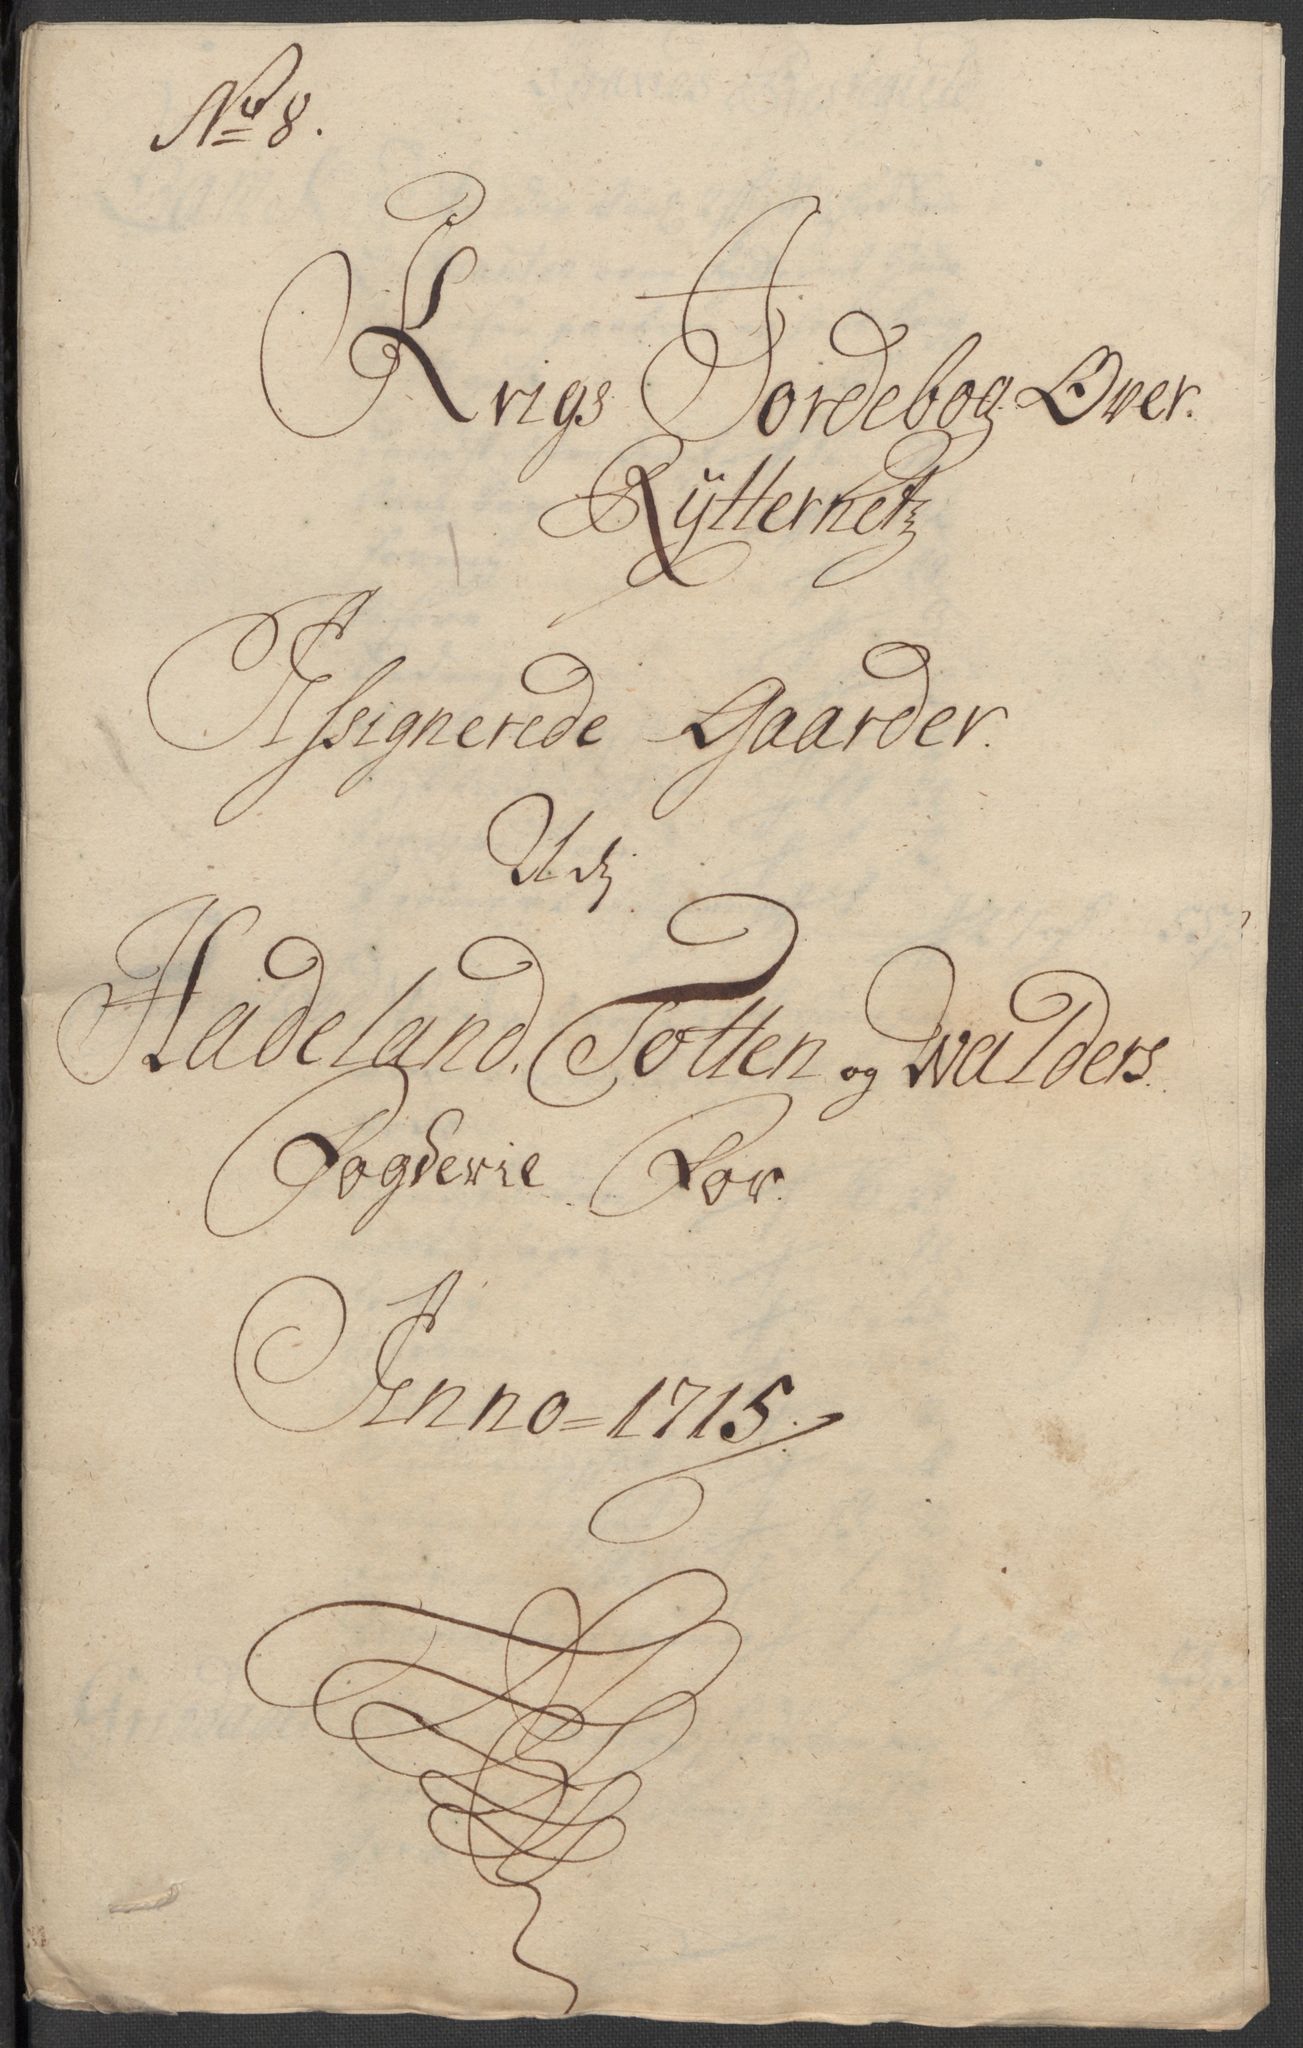 No 8.
Krigs Jordebog Over.
Rÿtternetz
Assignerede Gaarder.
Udj
Hadeland, Totten og Walders
Fogderie For
Anno = 1715